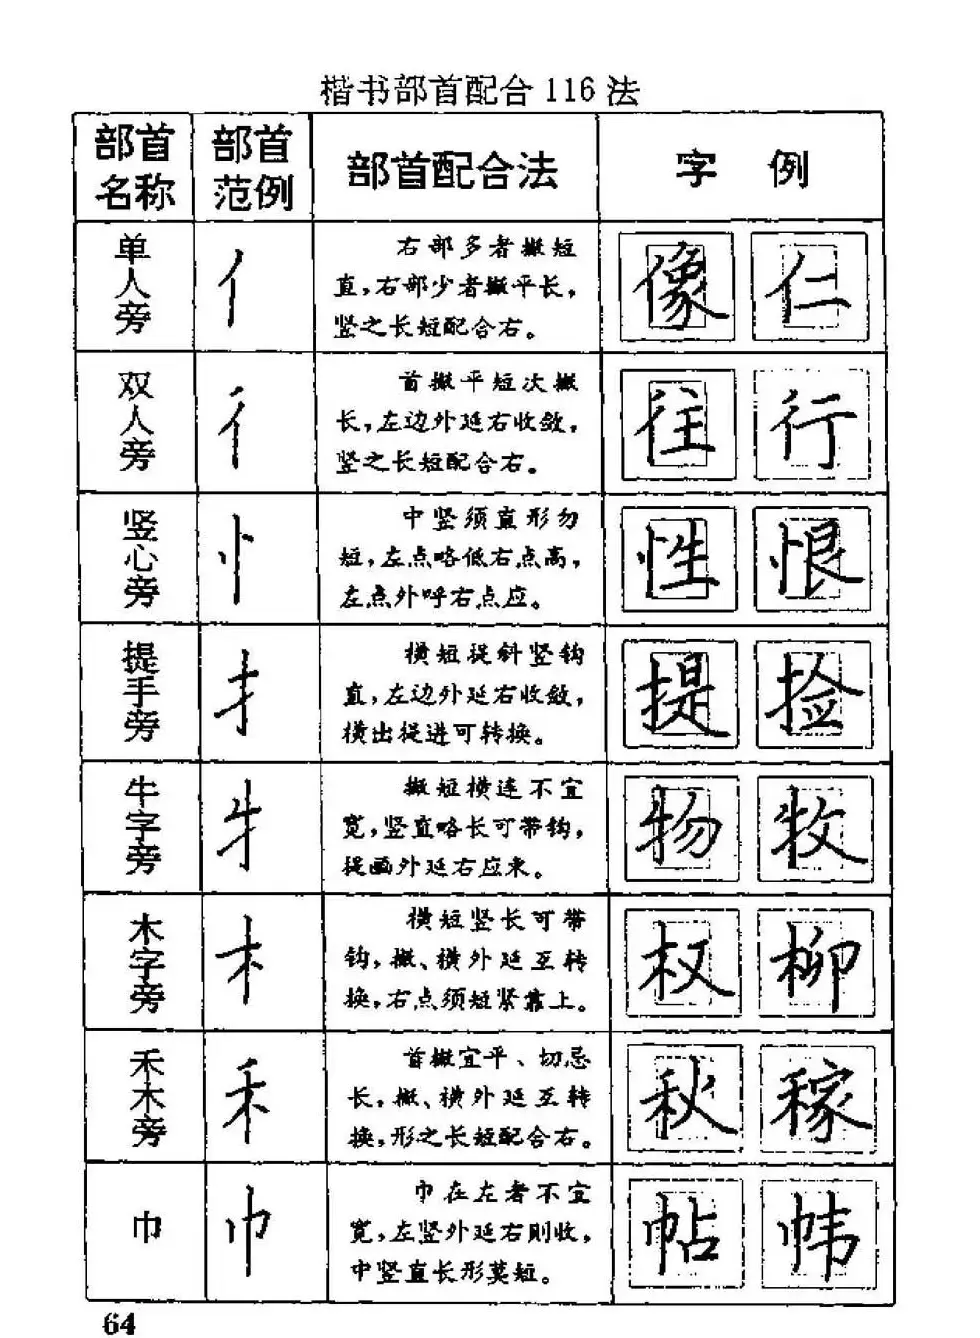 楷书部首配合116法
部首名称 部首范例 部首配合法 字例
单人旁 亻 右部多者撇短
直，右部少者撇平长，
竖之长短配合右。
像 仁
双人旁 彳 首撇平短次撇
长，左边外延右收敛，
竖之长短配合右。
往 行
竖心旁 忄 中竖须直形勿
短，左点略低右点高，
左点外呼右点应。
性 恨
提手旁 扌 横短提斜竖钩
直，左边外延右收敛，
横出提进可转换。
提 捡
牛字旁 牜 撇短横连不宜
宽，竖直略长可带钩，
提画外延右应来。
物 牧
木字旁 木 横短竖长可带
钩，撇、横外延互转
换，右点须短紧靠上。
权 柳
禾木旁 禾 首撇宜平、切忌
长，撇、横外延互转
换，形之长短配合右。
秋 稼
巾 巾 巾在左者不宜
宽，左竖外延右则收，
中竖直长形莫短。
帖 帏
64